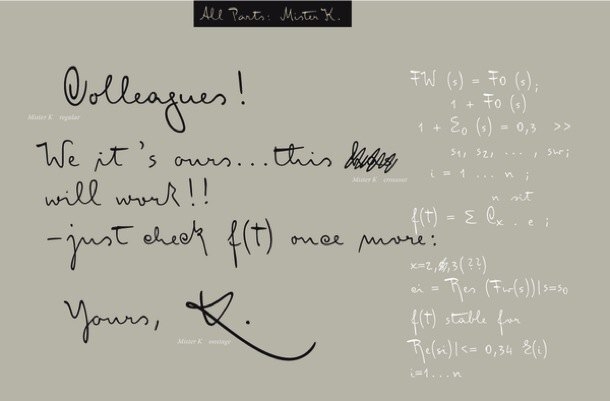 All Parts: Mister K.
Colleagues!
Mister K regular
We it's ours...this
Mister K crossout
will work!!
-just check f(t) once more:
Yours, K.
Mister K onstage
FW (s) = Fo (s);
1 + Fo (s)
1 + Σo (s) = 0,3 >>
s1, s2, ... , sw;
i = 1 ... n ;
n sit
f(t) = Σ Cx . e ;
x=2, ,3(??)
ei = Res (Fw(s))|s=so
f(t) stable for
Re(si)|<= 0,34 Σ(i)
i=1...n